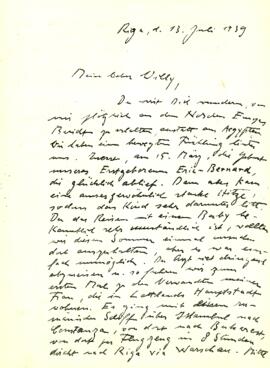 Riga, d. 13. Juli 1939
Mein lieber Willy,
Du wirst Dich wundern, von
mir plötzlich aus dem Norden Europas
Bericht zu erhalten, anstatt aus Aegypten
Wir haben einen bewegten Frühling hinter
uns. Zuerst, am 15. März, die Geburt
unseres Erstgeborenen Eric-Bernard,
die glücklich ablief. Dann aber kam
eine aussergewöhnlich starke Hitze,
sodass das Kind sehr darunter litt.
Da das Reisen mit einem Baby be-
kanntlich sehr umständlich ist, wollten
wir diesen Sommer einmal
dort aushalten, aber es
unmöglich. Der Arzt riet dringend
abzureisen u. so fuhren wir zum
ersten Mal zu den Verwandten meiner
Frau, die in Lettlands Hauptstadt
wohnen. Es ging mit einem ru-
mänischen Schiff über Istambul nach
Constanza, von dort nach Bukarest,
von dort per Flugzeug in 8 Stunden
direkt nach Riga via Warschau. Mitte